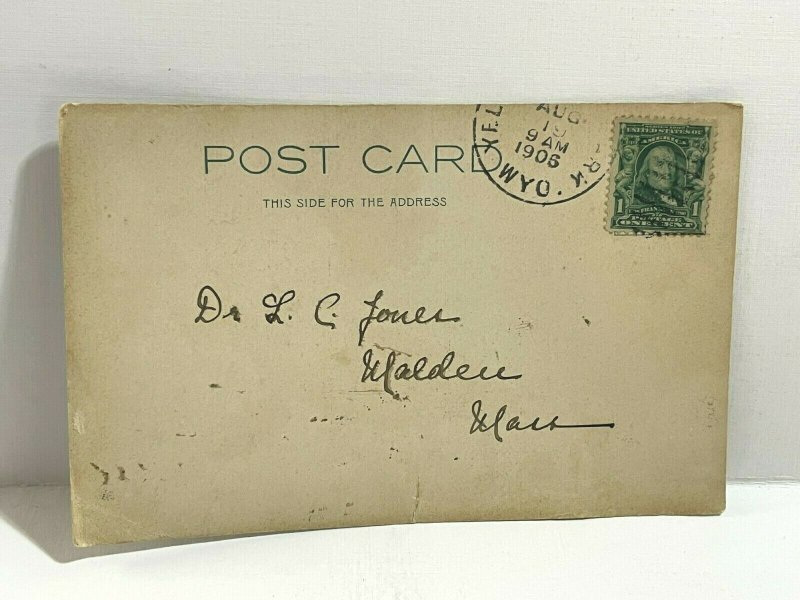 AUG.
19
9 AM
1906
YEL RK
WYO.
UNITED STATES OF
AMERICA
1 1
POSTAGE
ONE CENT
POST CARD
THIS SIDE FOR THE ADDRESS
Dr L. C. Jones
Malden
Mass